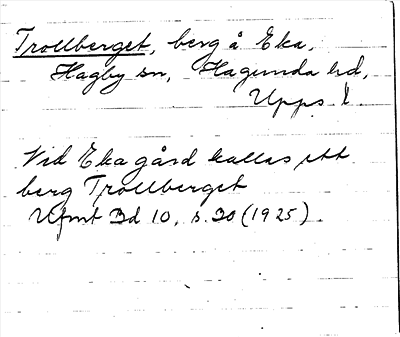 Trollberget, berg å Eka,
Hagby sn, Hagunda hd,
Upps. l.
Vid Eka gård kallas ett
berg Trollberget
Ufmt Bd 10, s. 20 (1925).